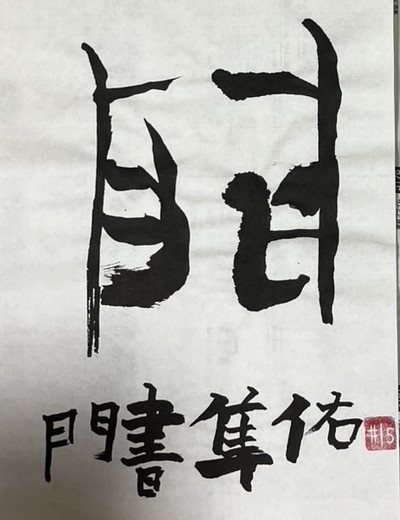 門
佑隼書門
#15